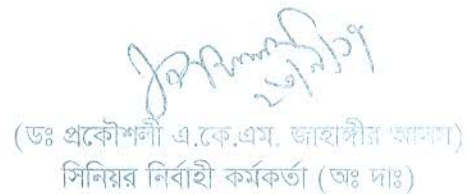 (ডঃ প্রকৌশলী এ.কে.এম. জাহাঙ্গীর আলম)
সিনিয়র নির্বাহী কর্মকর্তা (অঃ দাঃ)